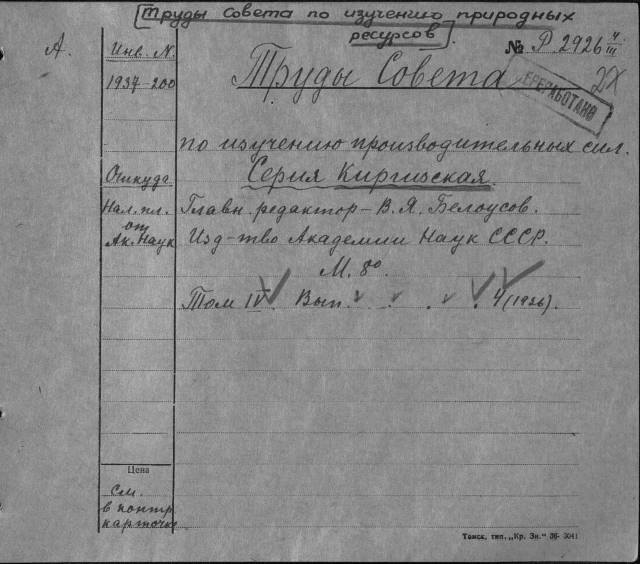 [Труды Совета по изучению природных
ресурсов].
А.
Инв. N.
1937–200
№ Р 2926 4/III
2х
ПЕРЕРАБОТАНО
Труды Совета
по изучению производительных сил.
Серия Киргизская.
Откуда
Нал. пл.
от
Ак. Наук
Главн. редактор – В. Я. Белоусов.
Изд-тво Академии Наук СССР.
М. 8°.
Том IV. Вып. . . . . 4 (1936).
Цена
См.
в контр.
карточке
Томск, тип. „Кр. Зн.“ 36- 3041